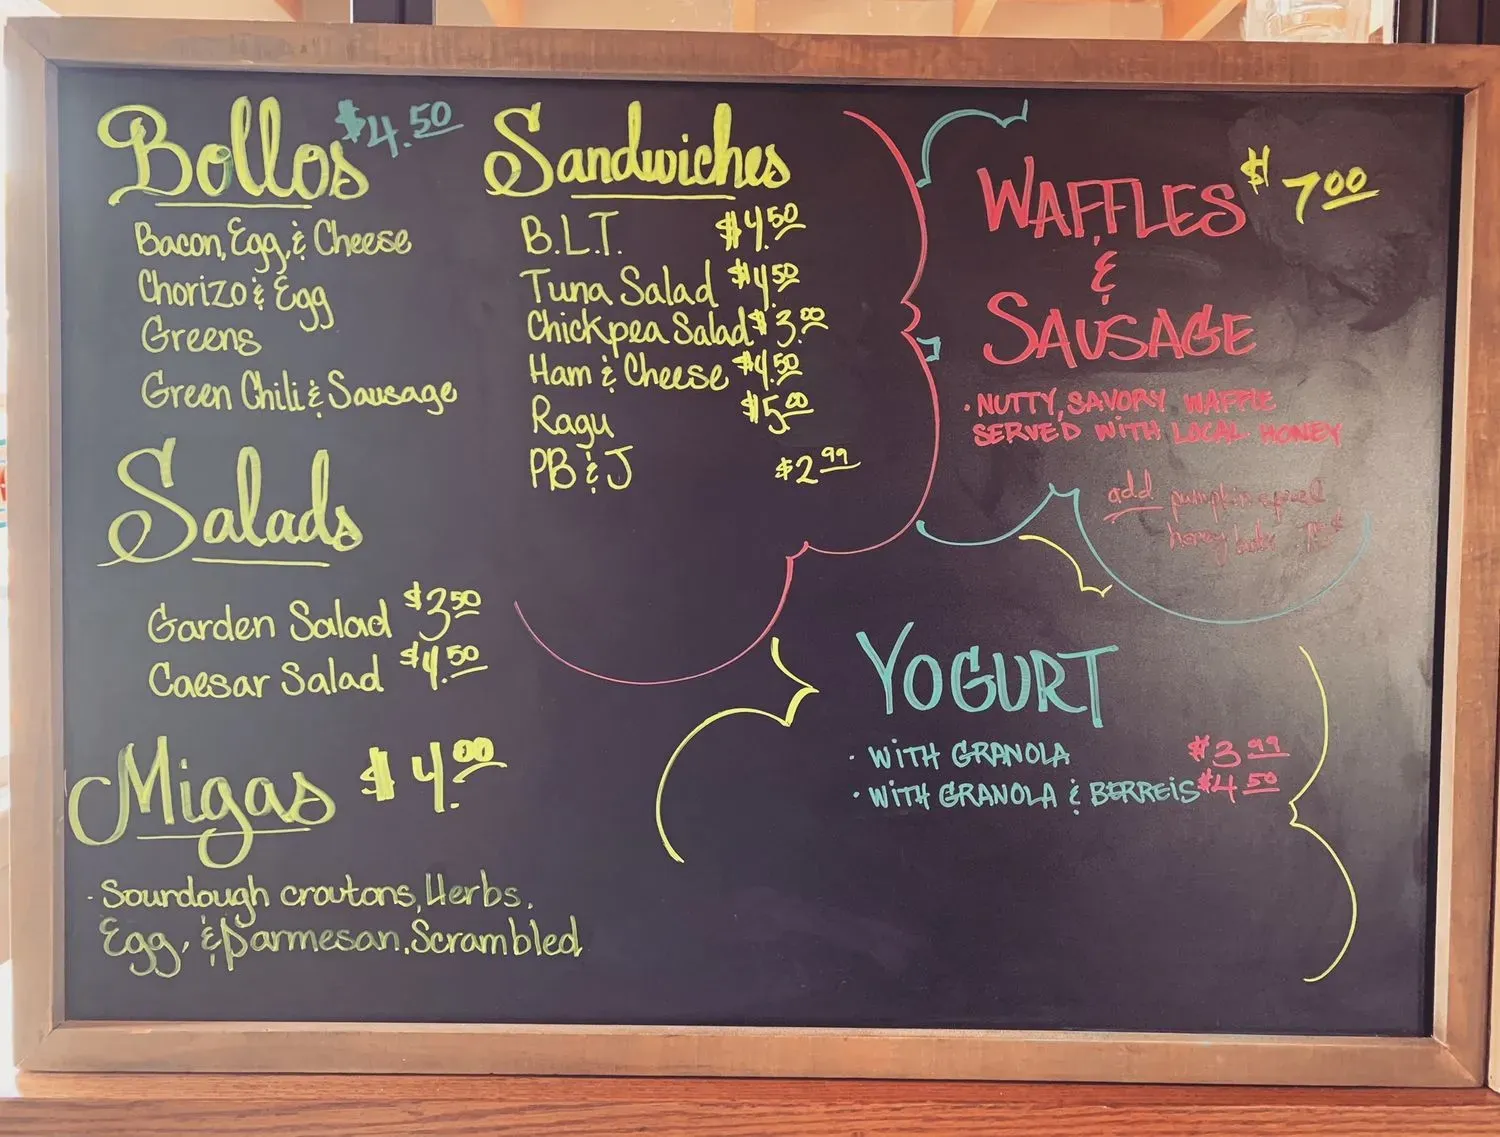 Bollos $4.50
Bacon, Egg, & Cheese
Chorizo & Egg
Greens
Green Chili & Sausage
Salads
Garden Salad $3.50
Caesar Salad $4.50
Migas $4.00
· Sourdough croutons, Herbs.
Egg, & Parmesan. Scrambled
Sandwiches
B.L.T. $4.50
Tuna Salad $4.50
Chickpea Salad $3.00
Ham & Cheese $4.50
Ragu $5.00
PB & J $2.99
WAFFLES $7.00
&
SAUSAGE
· NUTTY, SAVORY WAFFLE
SERVED WITH LOCAL HONEY
add pumpkin
honey
YOGURT
· WITH GRANOLA $3.99
· WITH GRANOLA & BERREIS $4.50